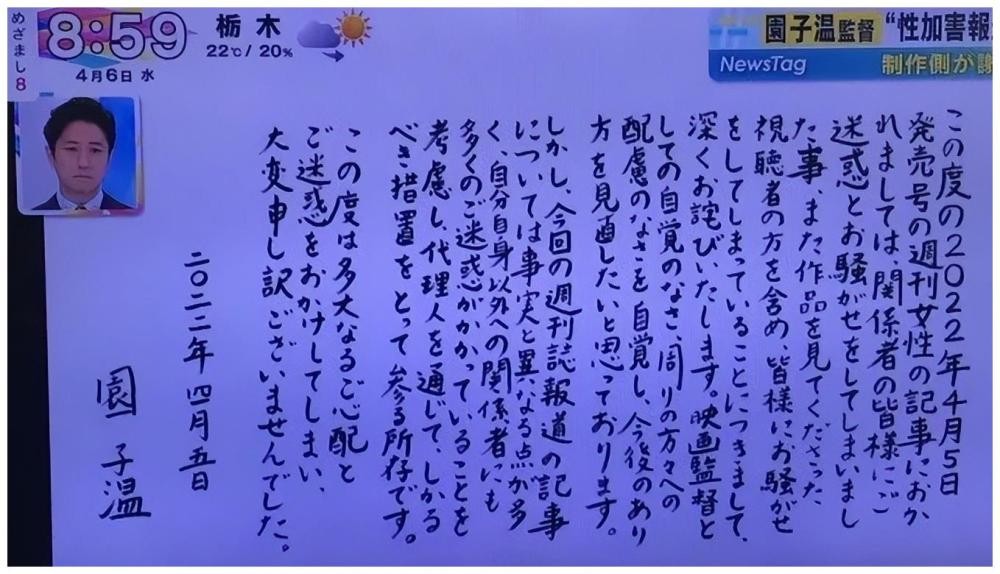 めざまし8
8:59
4月6日 水
栃木
22℃/20%
園子温監督 "性加害報
NewsTag
制作側が謝
この度の2022年4月5日
発売号の週刊女性の記事におか
れましては、関係者の皆様にご
迷惑とお騒がせをしてしまいまし
た事、また作品を見てくださった、
視聴者の方を含め、皆様にお騒がせ
をしてしまっていることにつきまして、
深くお詫びいたします。映画監督と
しての自覚のなさ、周りの方々への
配慮のなさを自覚し、今後のあり
方を見直したいと思っております。
しかし、今回の週刊誌報道の記事
については事実と異なる点が多
く、自分自身以外への関係者にも
多くのご迷惑がかかっていることを
考慮し、代理人を通じて、しかる
べき措置をとって参る所存です。
この度は多大なるご心配と
ご迷惑をおかけしてしまい、
大変申し訳ございませんでした。
二〇二二年 四月 五日
園 子温